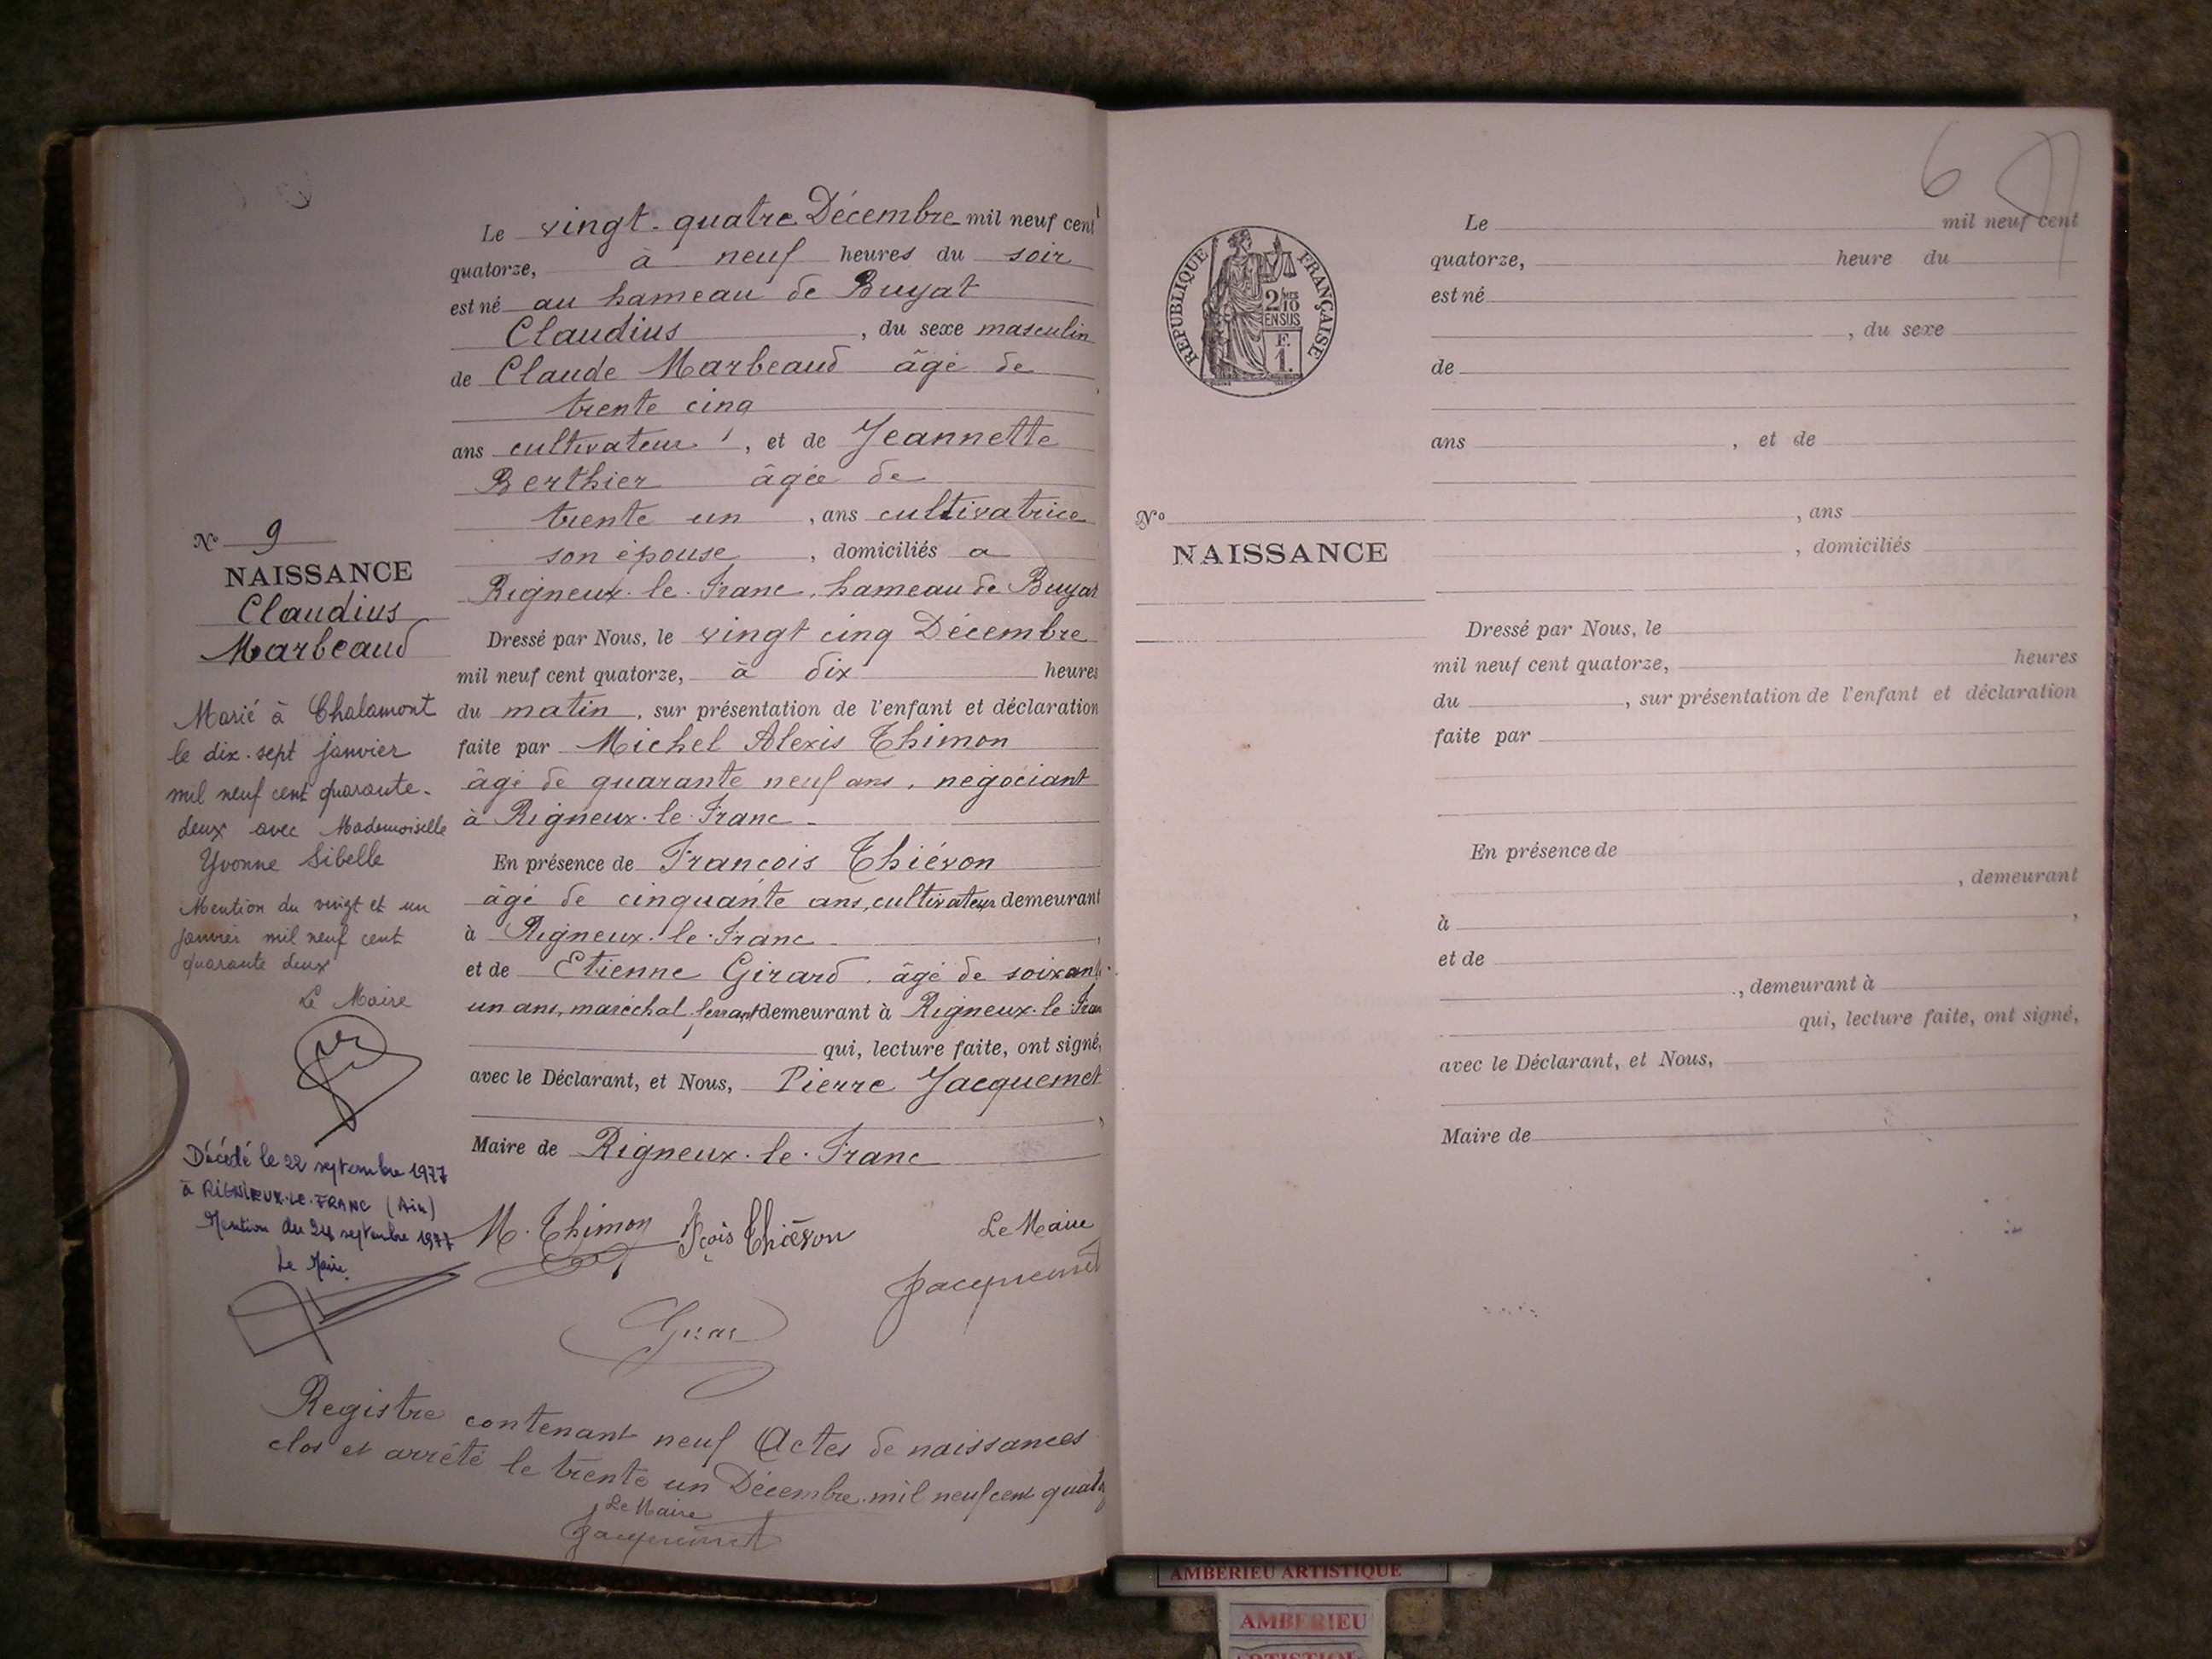 Le vingt-quatre Décembre mil neuf cent
quatorze, à neuf heures du soir
est né au hameau de Buyat
Claudius, du sexe masculin
de Claude Marbeaud âgé de
trente cinq
ans cultivateur, et de Jeannette
Berthier âgée de
trente un, ans cultivatrice
son épouse, domiciliés a
Rigneux-le-Franc, hameau de Buyat
Dressé par Nous, le vingt cinq Décembre
mil neuf cent quatorze, à dix heures
du matin, sur présentation de l'enfant et déclaration
faite par Michel Alexis Thimon
âgé de quarante neuf ans, négociant
à Rigneux-le-Franc
En présence de François Thiévon
âgé de cinquante ans, cultivateur demeurant
à Rigneux-le-Franc,
et de Etienne Girard, âgé de soixante
un ans, maréchal ferrant demeurant à Rigneux-le-Fran
qui, lecture faite, ont signé,
avec le Déclarant, et Nous, Pierre Jacquemet
Maire de Rigneux-le-Franc
M. Thimon Fçois Thiévon Le Maire
Jacquemet
Girar
Registre contenant neuf Actes de naissances
clos et arrêté le trente un Décembre mil neuf cent quatz
Le Maire
Jacquemet
No 9
NAISSANCE
Claudius
Marbeaud
Marié à Chalamont
le dix-sept janvier
mil neuf cent quarante-
deux avec Mademoiselle
Yvonne Sibelle
Mention du vingt et un
janvier mil neuf cent
quarante deux
Le Maire
Décédé le 22 septembre 1977
à RIGNIEUX-LE-FRANC (Ain)
Mention du 24 septembre 1977
Le Maire
6
RÉPUBLIQUE FRANÇAISE
2/10 MES
EN SUS
F.
1.
No
NAISSANCE
Le mil neuf cent
quatorze, heure du
est né
, du sexe
de
ans , et de
, ans
, domiciliés
Dressé par Nous, le
mil neuf cent quatorze, heures
du , sur présentation de l'enfant et déclaration
faite par
En présence de
, demeurant
à ,
et de
, demeurant à
qui, lecture faite, ont signé,
avec le Déclarant, et Nous,
Maire de
AMBERIEU ARTISTIQUE
AMBERIEU
ARTISTIQUE